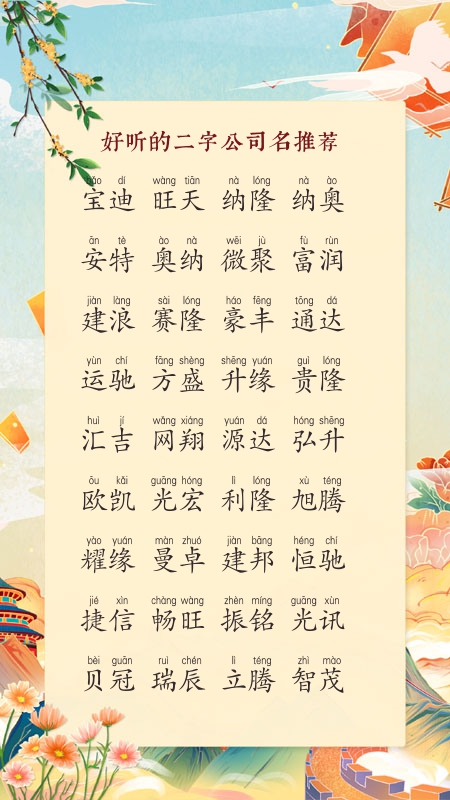 好听的二字公司名推荐
bǎo dí wàng tiān nà lóng nà ào
宝迪 旺天 纳隆 纳奥
ān tè ào nà wēi jù fù rùn
安特 奥纳 微聚 富润
jiàn làng sài lóng háo fēng tōng dá
建浪 赛隆 豪丰 通达
yùn chí fāng shèng shēng yuán guì lóng
运驰 方盛 升缘 贵隆
huì jí wǎng xiáng yuán dá hóng shēng
汇吉 网翔 源达 弘升
ōu kǎi guāng hóng lì lóng xù téng
欧凯 光宏 利隆 旭腾
yào yuán màn zhuó jiàn bāng héng chí
耀缘 曼卓 建邦 恒驰
jié xìn chàng wàng zhèn míng guāng xùn
捷信 畅旺 振铭 光讯
bèi guān ruì chén lì téng zhì mào
贝冠 瑞辰 立腾 智茂